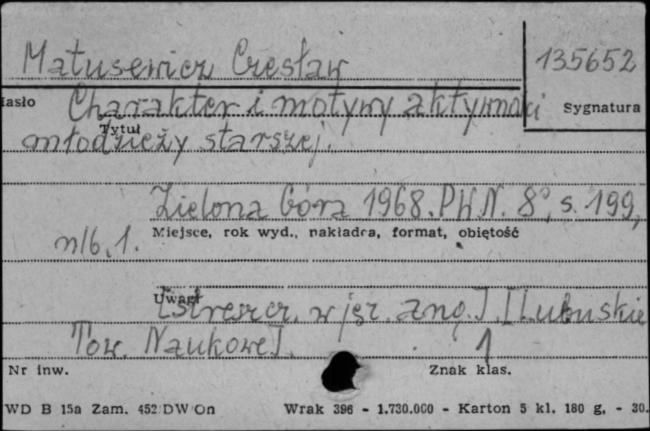 Matusewicz Czesław
135652
Hasło
Charakter i motywy aktywności
Sygnatura
Tytuł
młodzieży starszej.
Zielona Góra 1968. PWN. 8°, s. 199,
Miejsce, rok wyd., nakładca, format, objętość
nlb. 1.
Uwagi
[Streszcz. w jęz. ang.]. [Lubuskie
Tow. Naukowe].
1
Nr inw.
Znak klas.
WD B 15a Zam. 452 DW On
Wrak 396 - 1.730.000 - Karton 5 kl. 180 g. - 30.